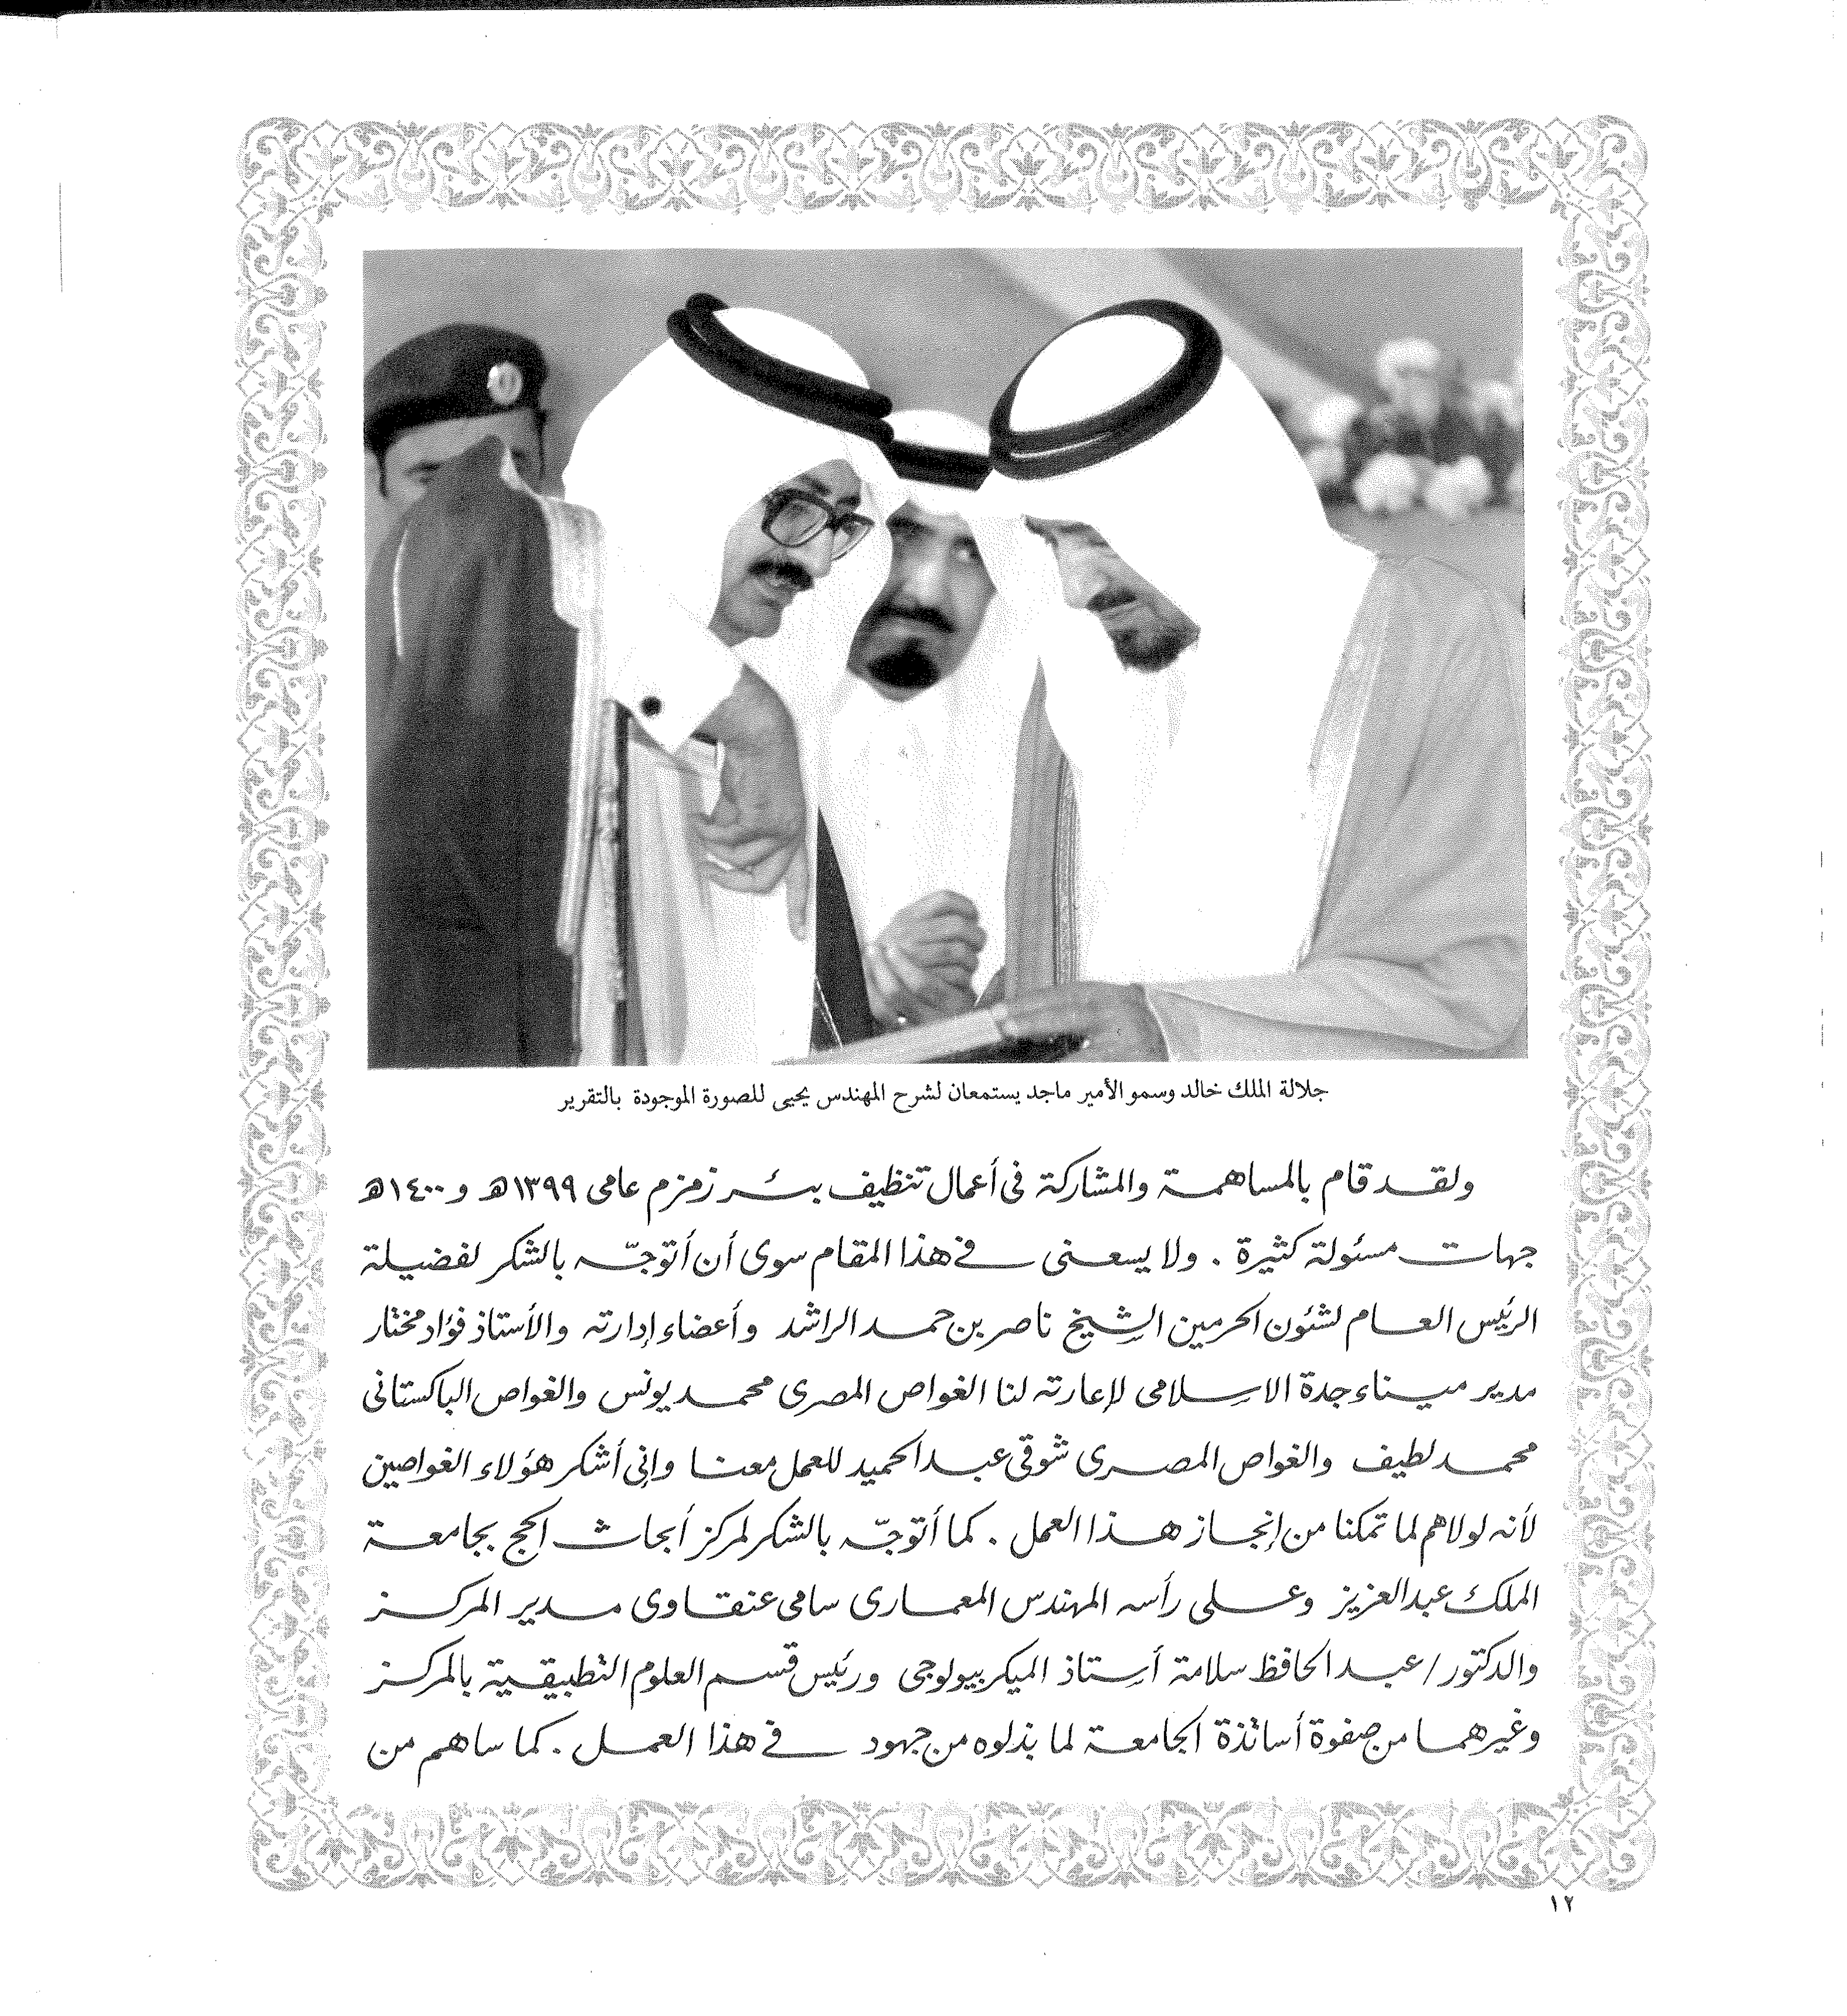 جلالة الملك خالد وسمو الأمير ماجد يستمعان لشرح المهندس يحيى للصورة الموجودة بالتقرير
ولقد قام بالمساهمة والمشاركة فى أعمال تنظيف بئر زمزم عامى ١٣٩٩هـ و ١٤٠٠هـ
جهات مسئولة كثيرة . ولا يسعنى فى هذا المقام سوى أن أتوجّه بالشكر لفضيلة
الرئيس العام لشئون الحرمين الشيخ ناصر بن حمد الراشد وأعضاء إدارته والأستاذ فؤاد مختار
مدير ميناء جدة الاسلامى لإعارته لنا الغواص المصرى محمد يونس والغواص الباكستانى
محمد لطيف والغواص المصرى شوقى عبد الحميد للعمل معنا وإنى أشكر هؤلاء الغواصين
لأنه لولاهم لما تمكنا من إنجاز هذا العمل . كما أتوجّه بالشكر لمركز أبحاث الحج بجامعة
الملك عبد العزيز وعلى رأسه المهندس المعمارى سامى عنقاوى مدير المركز
والدكتور / عبد الحافظ سلامة أستاذ الميكربيولوجى ورئيس قسم العلوم التطبيقية بالمركز
وغيرهما من صفوة أساتذة الجامعة لما بذلوه من جهود فى هذا العمل . كما ساهم من
١٢